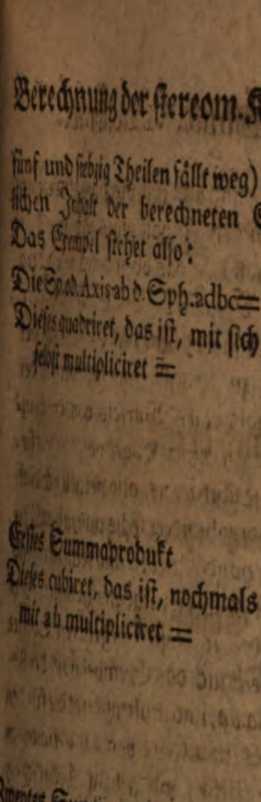 Berechnung der stereom. K
fünf und siebzig Theilen fällt weg)
lichen Inhalt der berechneten
Das Exempel stehet also:
Die Axis ab d. Sph. adbc=
Dieses quadriret, das ist, mit sich
selbst multipliciret =
Erstes Summaprodukt
Dieses cubiret, das ist, nochmals
mit ab multipliciret =